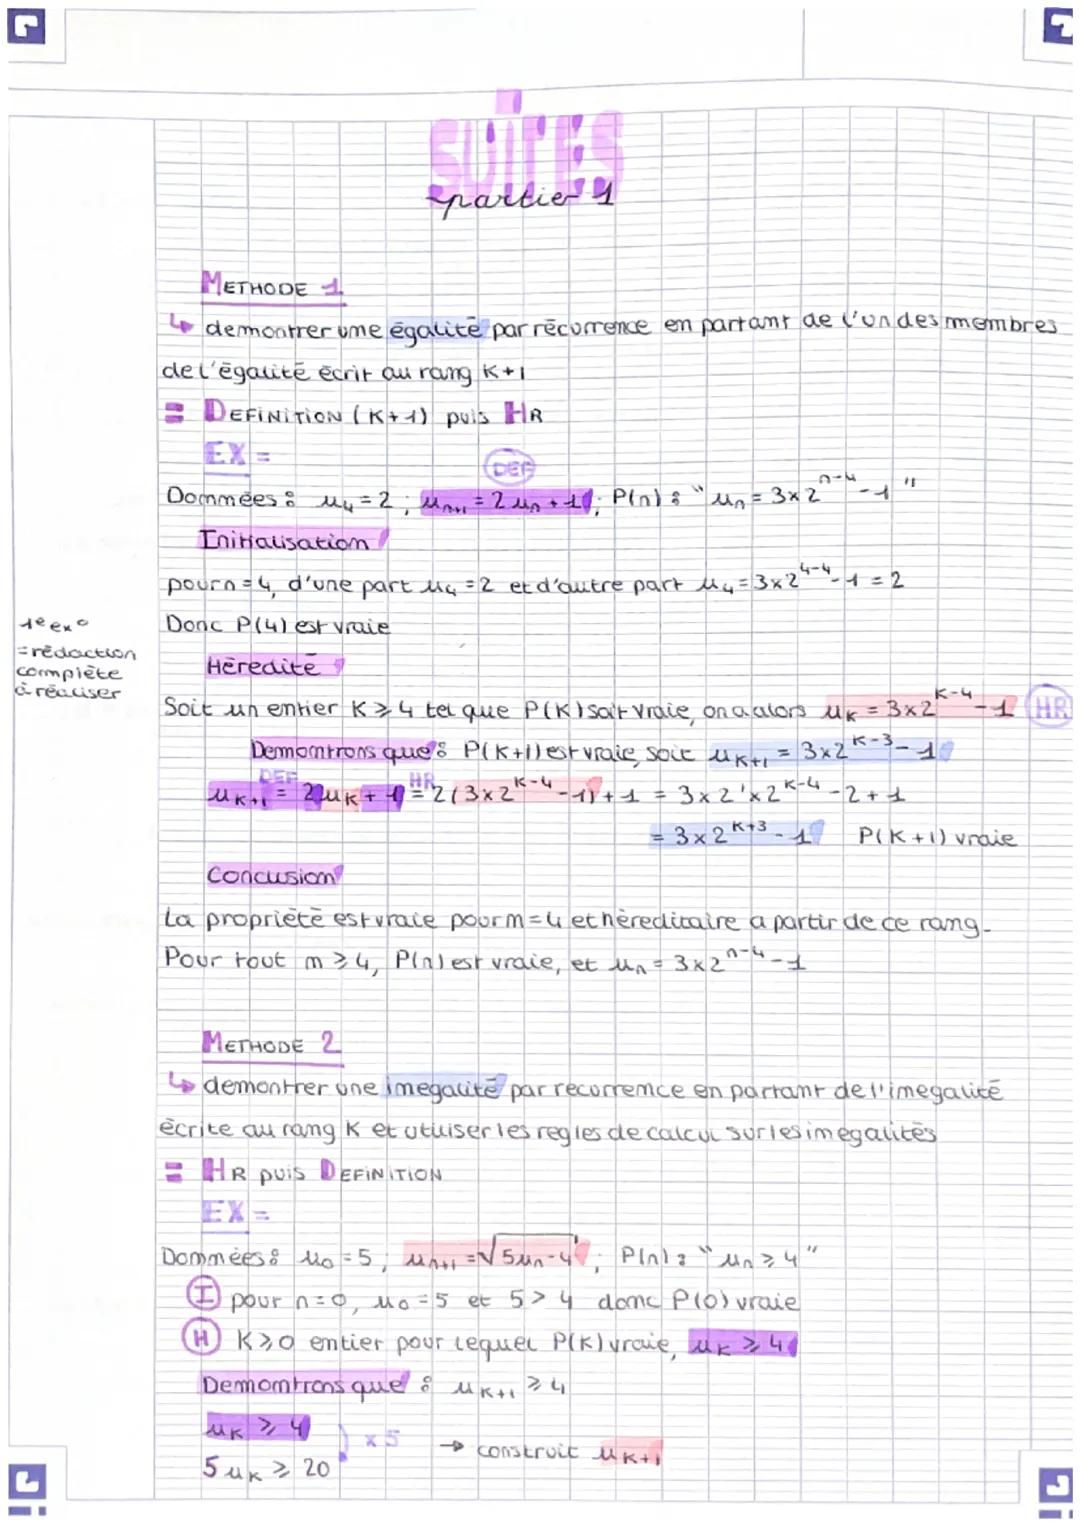 SUITES
partie 1
METHODE 1
↳ demontrer une égalité par récurrence en partant de l'un des membres
de l'égalité écrit au rang K+1
= DEFINITION (K+1) puis HR
EX =
DEF
Données : u₄ = 2 ; uₙ₊₁ = 2uₙ + 1 ; P(n) : " uₙ = 3×2ⁿ⁻⁴ - 1 "
Initialisation
pour n = 4, d'une part u₄ = 2 et d'autre part u₄ = 3×2⁴⁻⁴ - 1 = 2
Donc P(4) est vraie
1e ex°
= rédaction
complète
à réaliser
Hérédité
Soit un entier K ⩾ 4 tel que P(K) soit vraie, on a alors u_K = 3×2^{K-4} - 1 HR
Demontrons que : P(K+1) est vraie, soit u_{K+1} = 3×2^{K-3} - 1
DEF HR
u_{K+1} = 2u_K + 1 = 2(3×2^{K-4} - 1) + 1 = 3×2¹×2^{K-4} - 2 + 1
= 3×2^{K+3} - 1 P(K+1) vraie
Concusion
La propriété est vraie pour n = 4 et héreditaire a partir de ce rang.
Pour tout n ⩾ 4, P(n) est vraie, et uₙ = 3×2ⁿ⁻⁴ - 1
METHODE 2
↳ demontrer une inegalité par recurrence en partant de l'inegalité
écrite au rang K et utiliser les regles de calcul sur les inegalités
= HR puis DEFINITION
EX =
Données : u₀ = 5 ; uₙ₊₁ = √(5uₙ - 4) ; P(n) : " uₙ ⩾ 4 "
I pour n = 0, u₀ = 5 et 5 > 4 donc P(0) vraie
H K ⩾ 0 entier pour lequel P(K) vraie, u_K ⩾ 4
Demontrons que : u_{K+1} ⩾ 4
u_K ⩾ 4
× 5 → construit u_{K+1}
5 u_K ⩾ 20